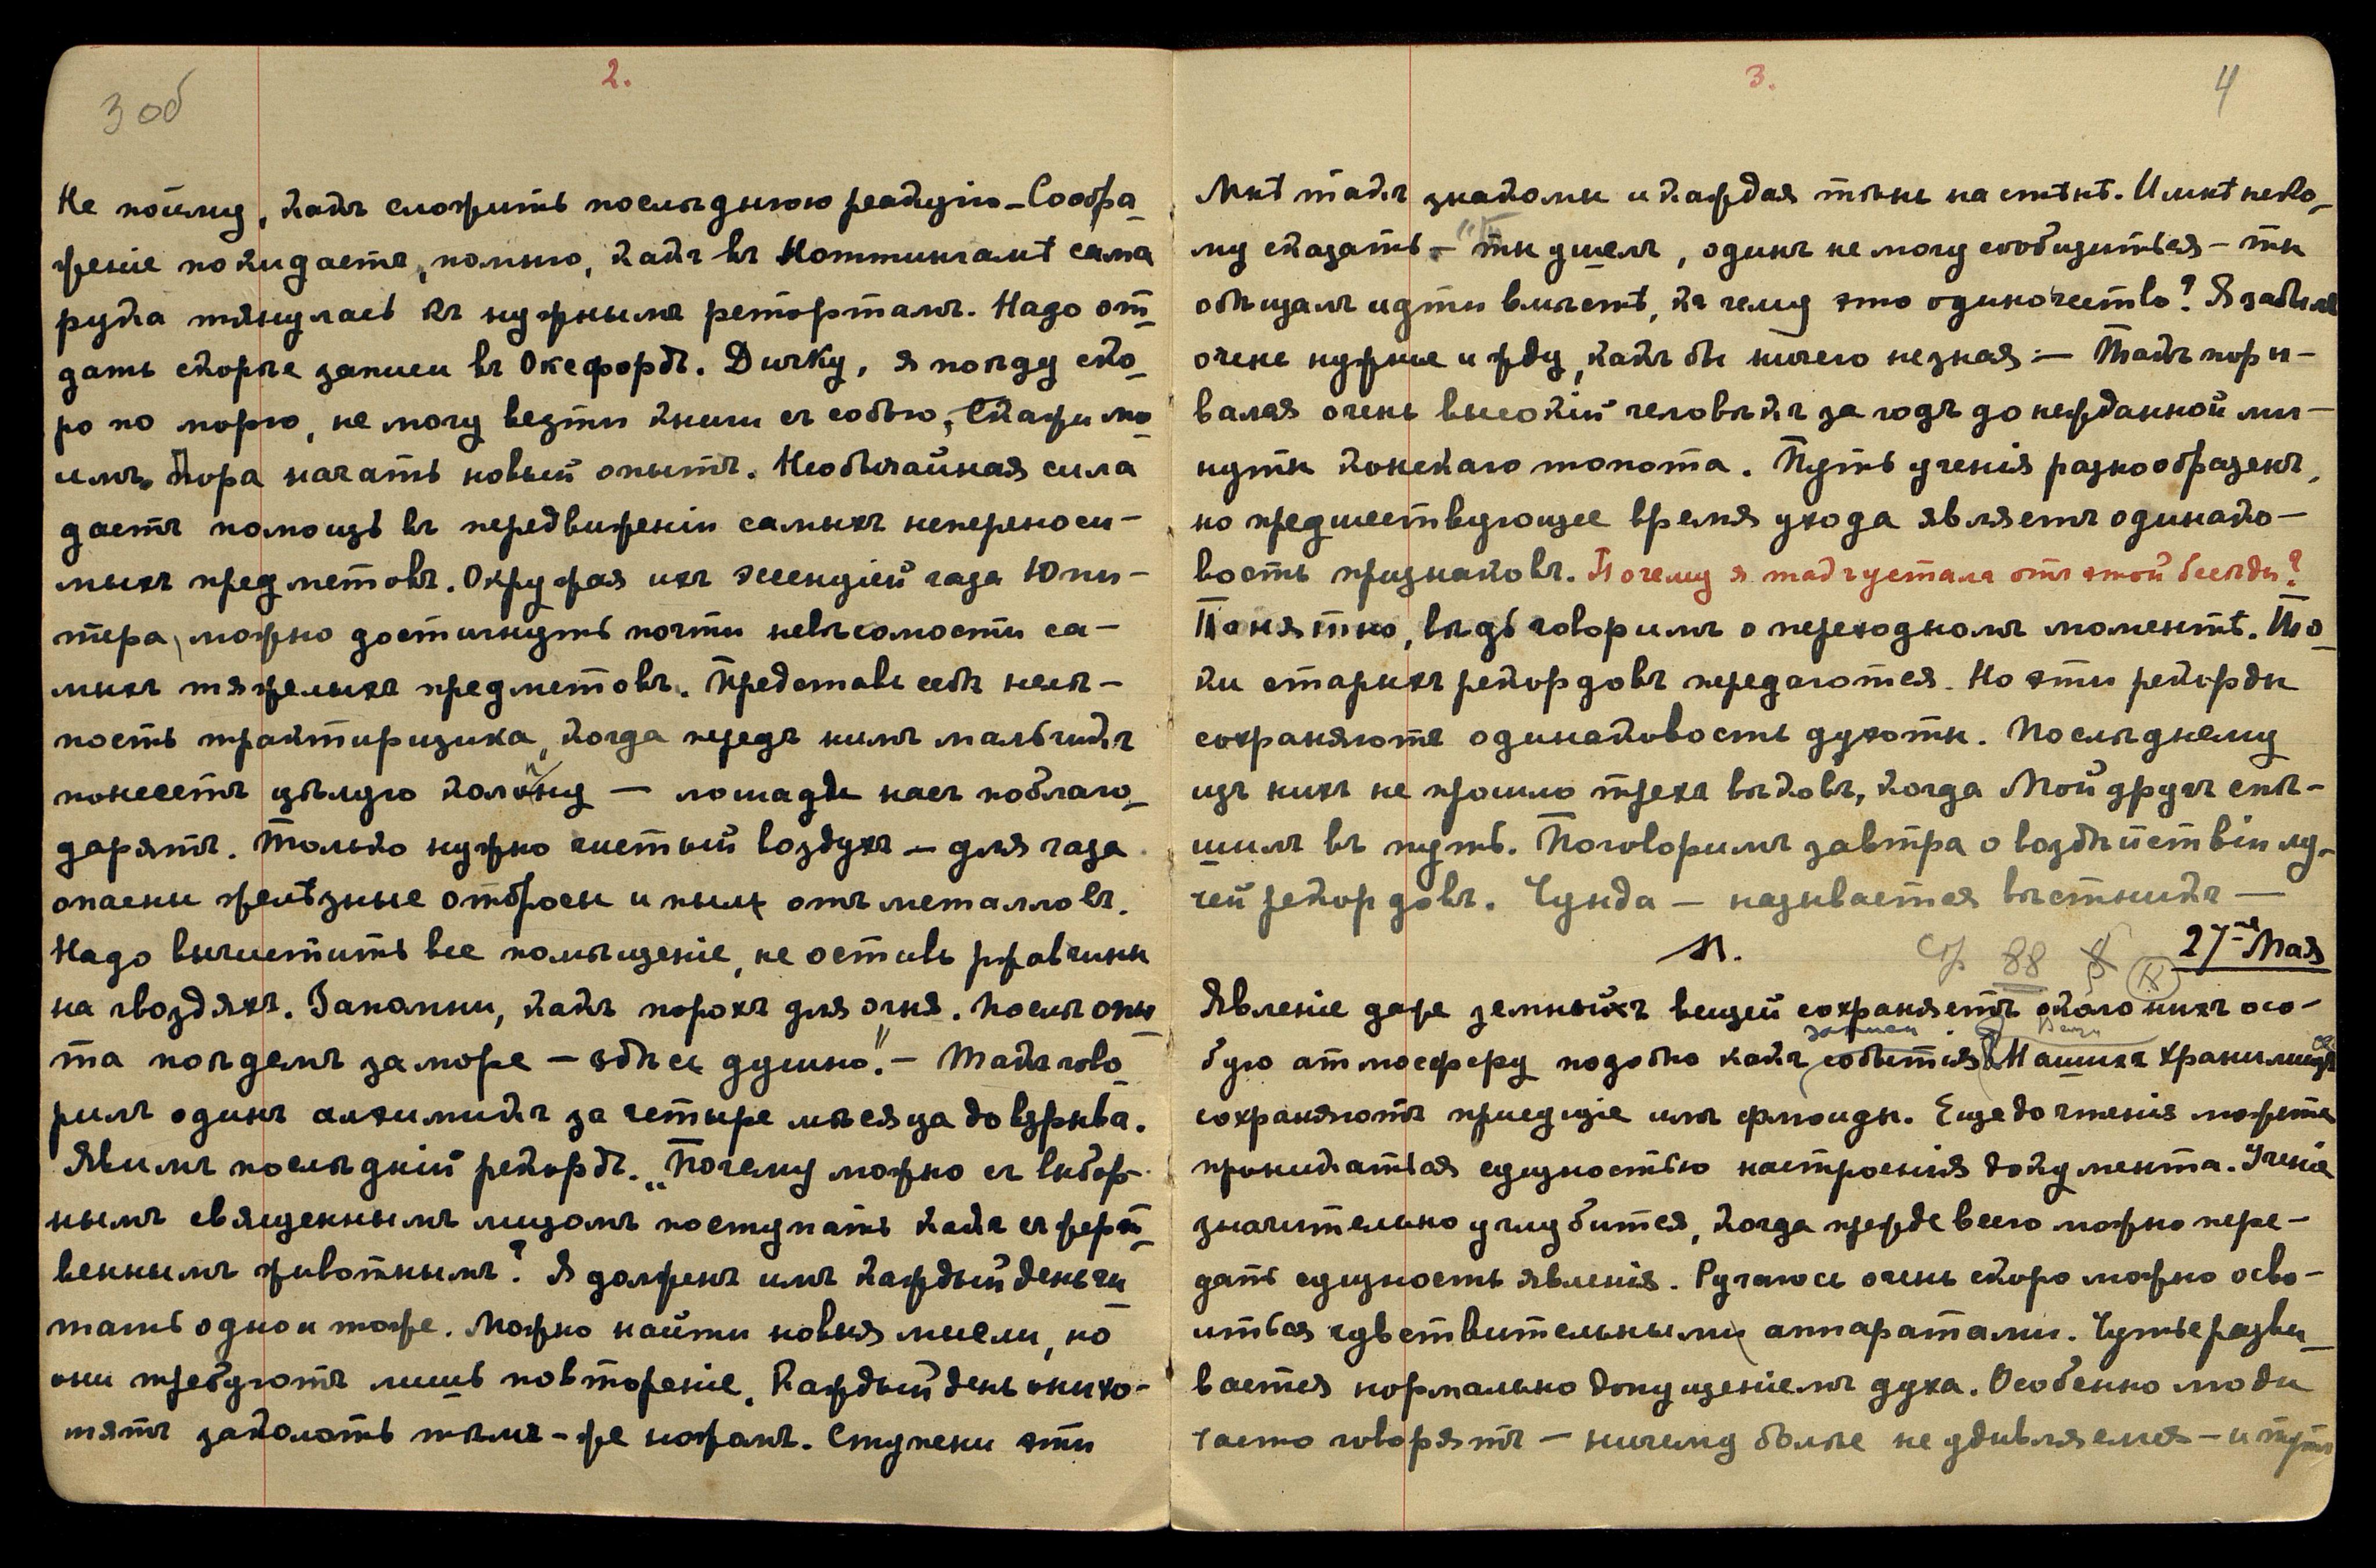 3 об
2.
Не пойму, какъ сложить послѣднюю реакцію – Сообра-
женіе покидаетъ, помню, какъ въ Ноттингамѣ сама
рука тянулась къ нужнымъ ретортамъ. Надо от-
дать скорѣе записи въ Оксфордъ. Дичку, я поѣду ско-
ро по морю, не могу везти книги съ собою, Скажи мо-
имъ. Пора начать новый опытъ. Необычайная сила
даетъ помощь въ передвиженіи самыхъ непереноси-
мыхъ предметовъ. Окружая ихъ эссенціей газа Юпи-
тера, можно достигнуть почти невѣсомости са-
мыхъ тяжелыхъ предметовъ. Представь себѣ нелѣ-
пость трактирщика, когда передъ нимъ мальчикъ
понесетъ цѣлую колонну – лошади насъ поблаго-
дарятъ. Только нужно чистый воздухъ – для газа
опасны желѣзные отбросы и пыль отъ металловъ.
Надо вычистить все помѣщеніе, не оставь ржавчины
на гвоздяхъ. Запомни, какъ порохъ для огня. Послѣ опы-
та поѣдемъ за море – здѣсь душно". – Такъ гово-
рилъ одинъ алхимикъ за четыре мѣсяца до взрыва.
Явимъ послѣдній рекордъ. „Почему можно съ выбор-
нымъ священнымъ лицомъ поступать какъ съ жерт-
веннымъ животнымъ? Я долженъ имъ каждый день чи-
тать одно и тоже. Можно найти новыя мысли, но
они требуютъ лишь повтореніе. Каждый день они хо-
тятъ заколоть тѣмъ-же ножомъ. Ступени эти
4
3.
Мнѣ такъ знакомы и каждая тѣнь на стѣнѣ. И мнѣ неко-
му сказать – ты ушелъ, одинъ не могу сообщиться – ты
обѣщалъ идти вмѣстѣ, къ чему это одиночество? Я забылъ
очень нужное и жду, какъ бы ничего не зная: – Такъ поры-
вался очень высокій человѣкъ за годъ до нежданной ми-
нуты конскаго топота. Путь ученія разнообразенъ,
но предшествующее время ухода являетъ одинако-
вость признаковъ. Почему я такъ усталъ отъ этой бесѣды?
Понятно, вѣдь говоримъ о переходномъ моментѣ. То-
ки старыхъ рекордовъ передаются. Но эти рекорды
сохраняютъ одинаковость духоты. Послѣднему
изъ нихъ не прошло трехъ вѣковъ, когда Мой другъ спѣ-
шилъ въ путь. Поговоримъ завтра о воздѣйствіи лу-
чей рекордовъ. Чунда – называется вѣстникъ –
М. 88 27-го Мая
Явленіе даже земныхъ вещей сохраняетъ около нихъ осо-
записи
бую атмосферу подобно какъ событія. Нашихъ хранилищъ
сохраняютъ присущіе имъ флюиды. Еще до чтенія можете
проникаться сущностью настроенія документа. Ученіе
значительно углубится, когда прежде всего можно пере-
дать сущность явленія. Ручаюсь очень скоро можно осво-
иться чувствительными аппаратами. Чутье разви-
вается нормально допущеніемъ духа. Особенно люди
часто говорятъ – ничему болѣе не удивляемся – и тутъ